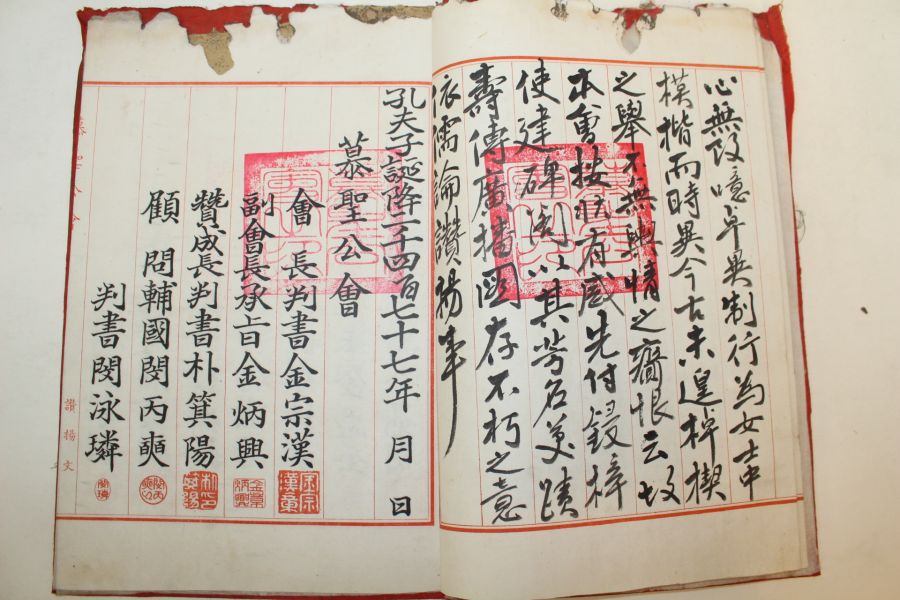 心無改噫卓異制行為女士中
模楷而時異今古未遑棹楔
之舉不無輿情之齎恨云故
本會按狀有感先付鋟梓
使建碑閣以其芳名美蹟
壽傳廣播図存不朽之意
依儒論讃揚事
孔夫子誕降二千四百七十七年 月 日
慕聖公會
會長判書金宗漢
副會長承旨金炳興
贊成長判書朴箕陽
顧問輔國閔丙奭
判書閔泳璘
讃揚文